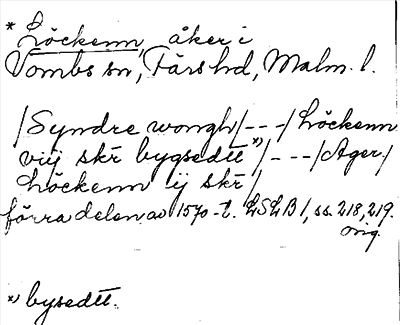 * Löckenn, åker i
Vombs sn, Färs hd, Malm. l.
/Syndre wongh/---/Löckenn
viij skr bygsedtt *)/---/Ager/
Löckenn ij skr/
förra delen av 1570-t. LSLB 1, ss. 218, 219.
orig.
*) bysedtt.